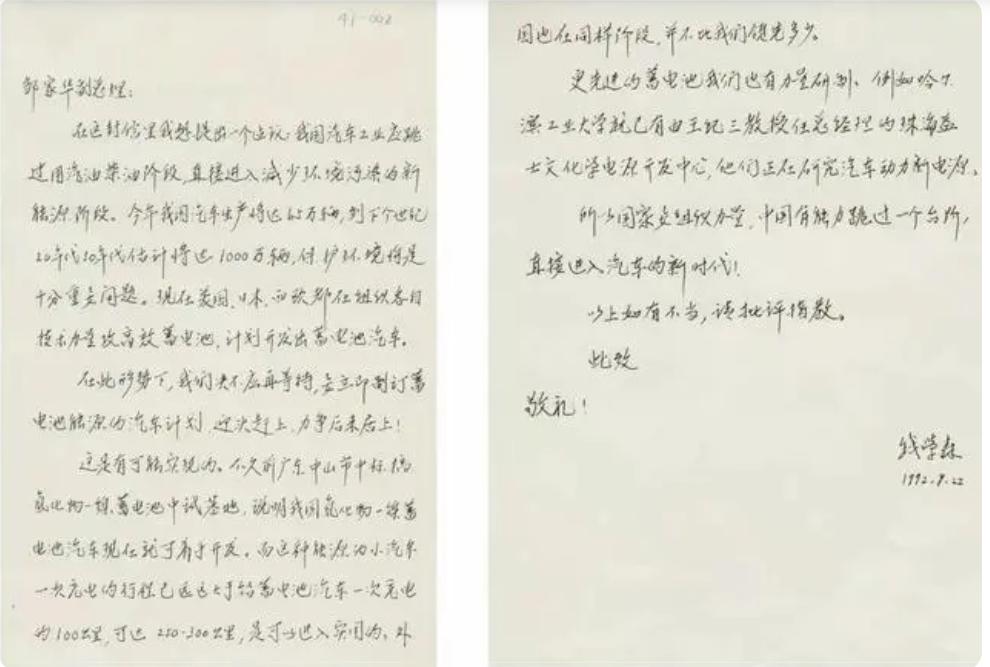 41-002
邹家华副总理：
在这封信里我想提出一个建议：我国汽车工业应跳
过用汽油柴油阶段，直接进入减少环境污染的新
能源阶段。今年我国汽车生产将达
20年代30年代估计将达1000万辆，保护环境将是
十分重要问题。现在美国、日本、西欧都在组织各自
技术力量攻高效蓄电池，计划开发出蓄电池汽车。
在此形势下，我们决不应再等待，要立即制订蓄
电池能源的汽车计划，迎头赶上，力争后来居上！
这是有可能实现的。不久前广东中山市中标，搞
氢化物—镍蓄电池中试基地，说明我国氢化物—镍蓄
电池汽车现在就可着手开发。而这种能源的小汽车
一次充电的行程已远远大于铅蓄电池汽车一次充电
的100公里，可达250-300公里，是可以进入实用的。外
国也在同样阶段，并不比我们领先多少。
更先进的蓄电池我们也有力量研制。例如哈尔
滨工业大学就已有由王纪三教授任总经理的珠海益
士文化学电源开发中心，他们正在研究汽车动力新电源。
所以国家要组织力量，中国有能力跳过一个台阶，
直接进入汽车的新时代！
以上如有不当，请批评指教。
此致
敬礼！
钱学森
1992.8.22